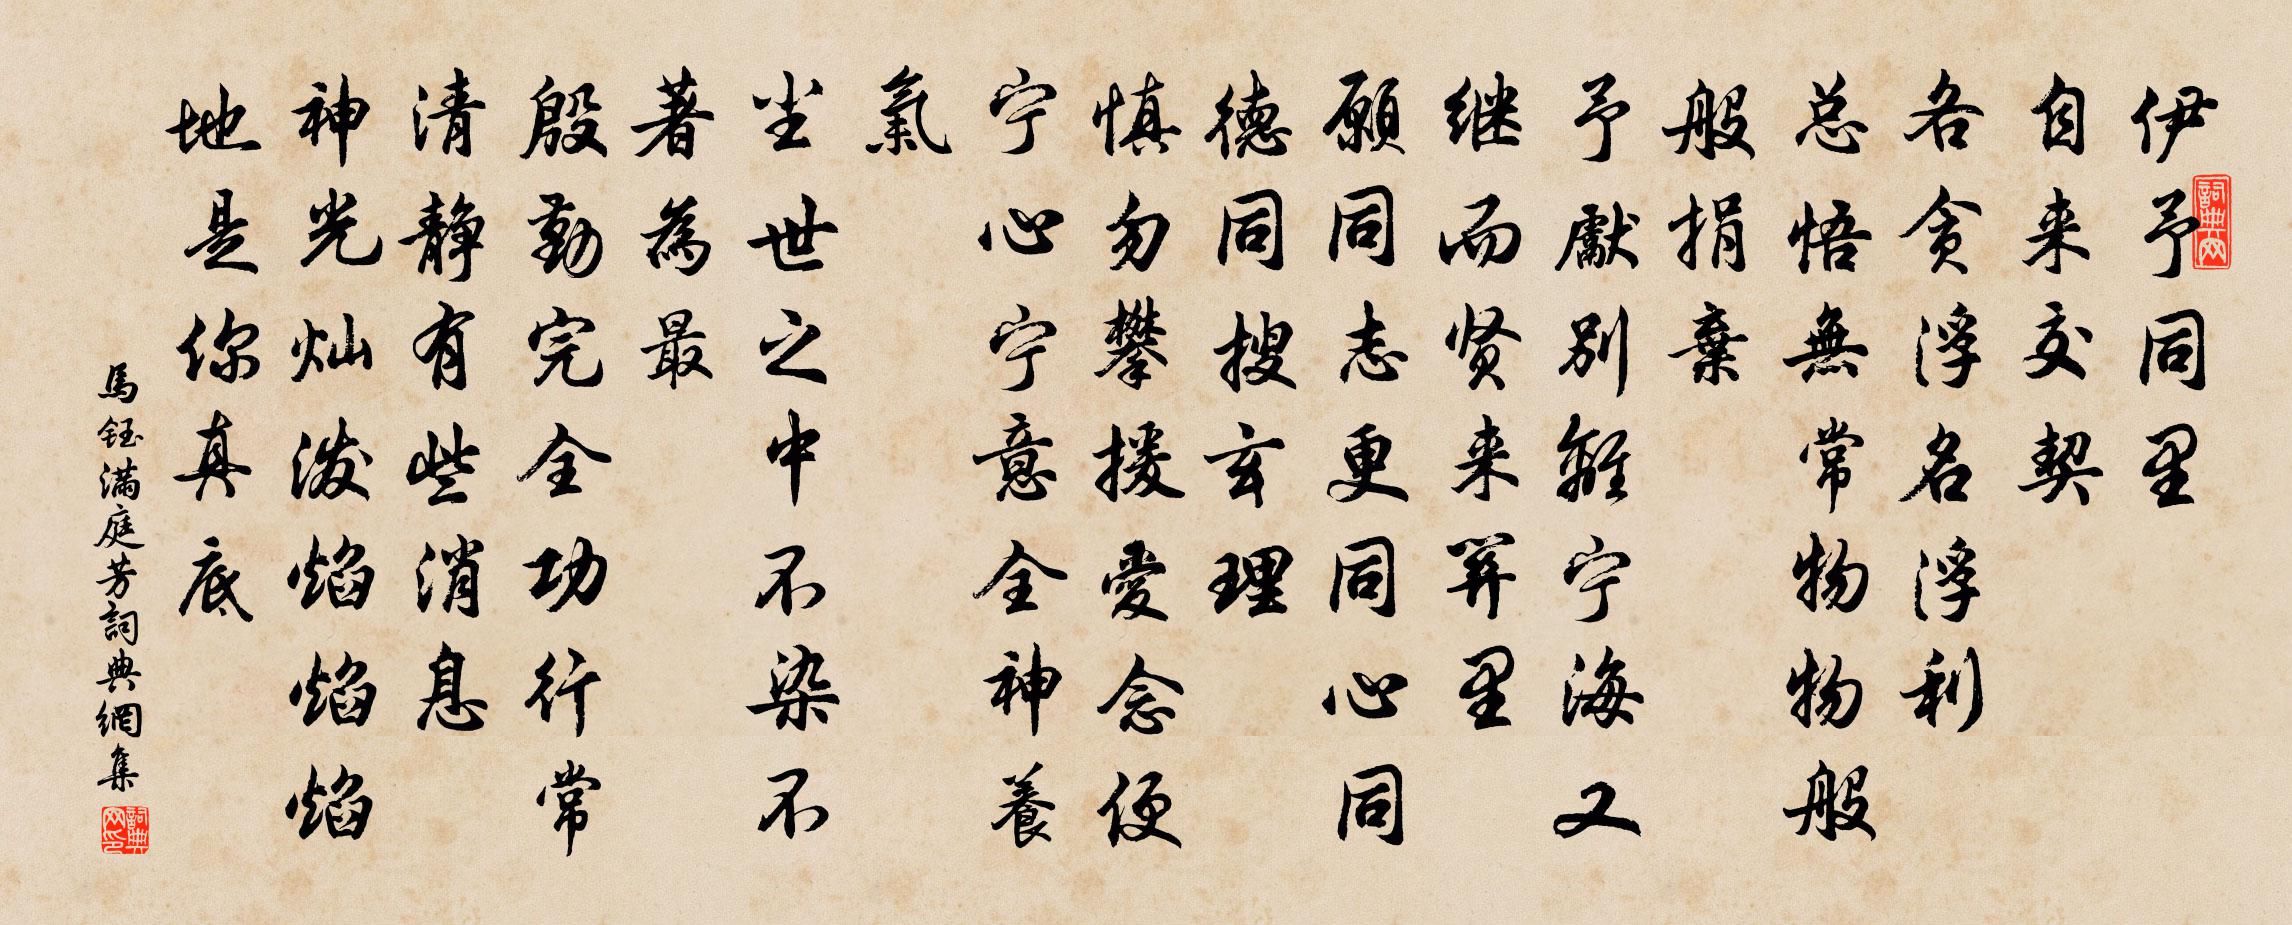 伊予同里
自来交契
各贪浮名浮利
总悟無常物物般
般捐棄
予獻别離宁海又
继而贤来羿里
願同志更同心同
德同搜玄理
慎勿攀援愛念便
宁心宁意全神養
氣
尘世之中不染不
著為最
殷勤完全功行常
清静有些消息
神光灿泼焰焰焰
地是你真底
馬鈺滿庭芳詞典網集
詞典网
詞典网印